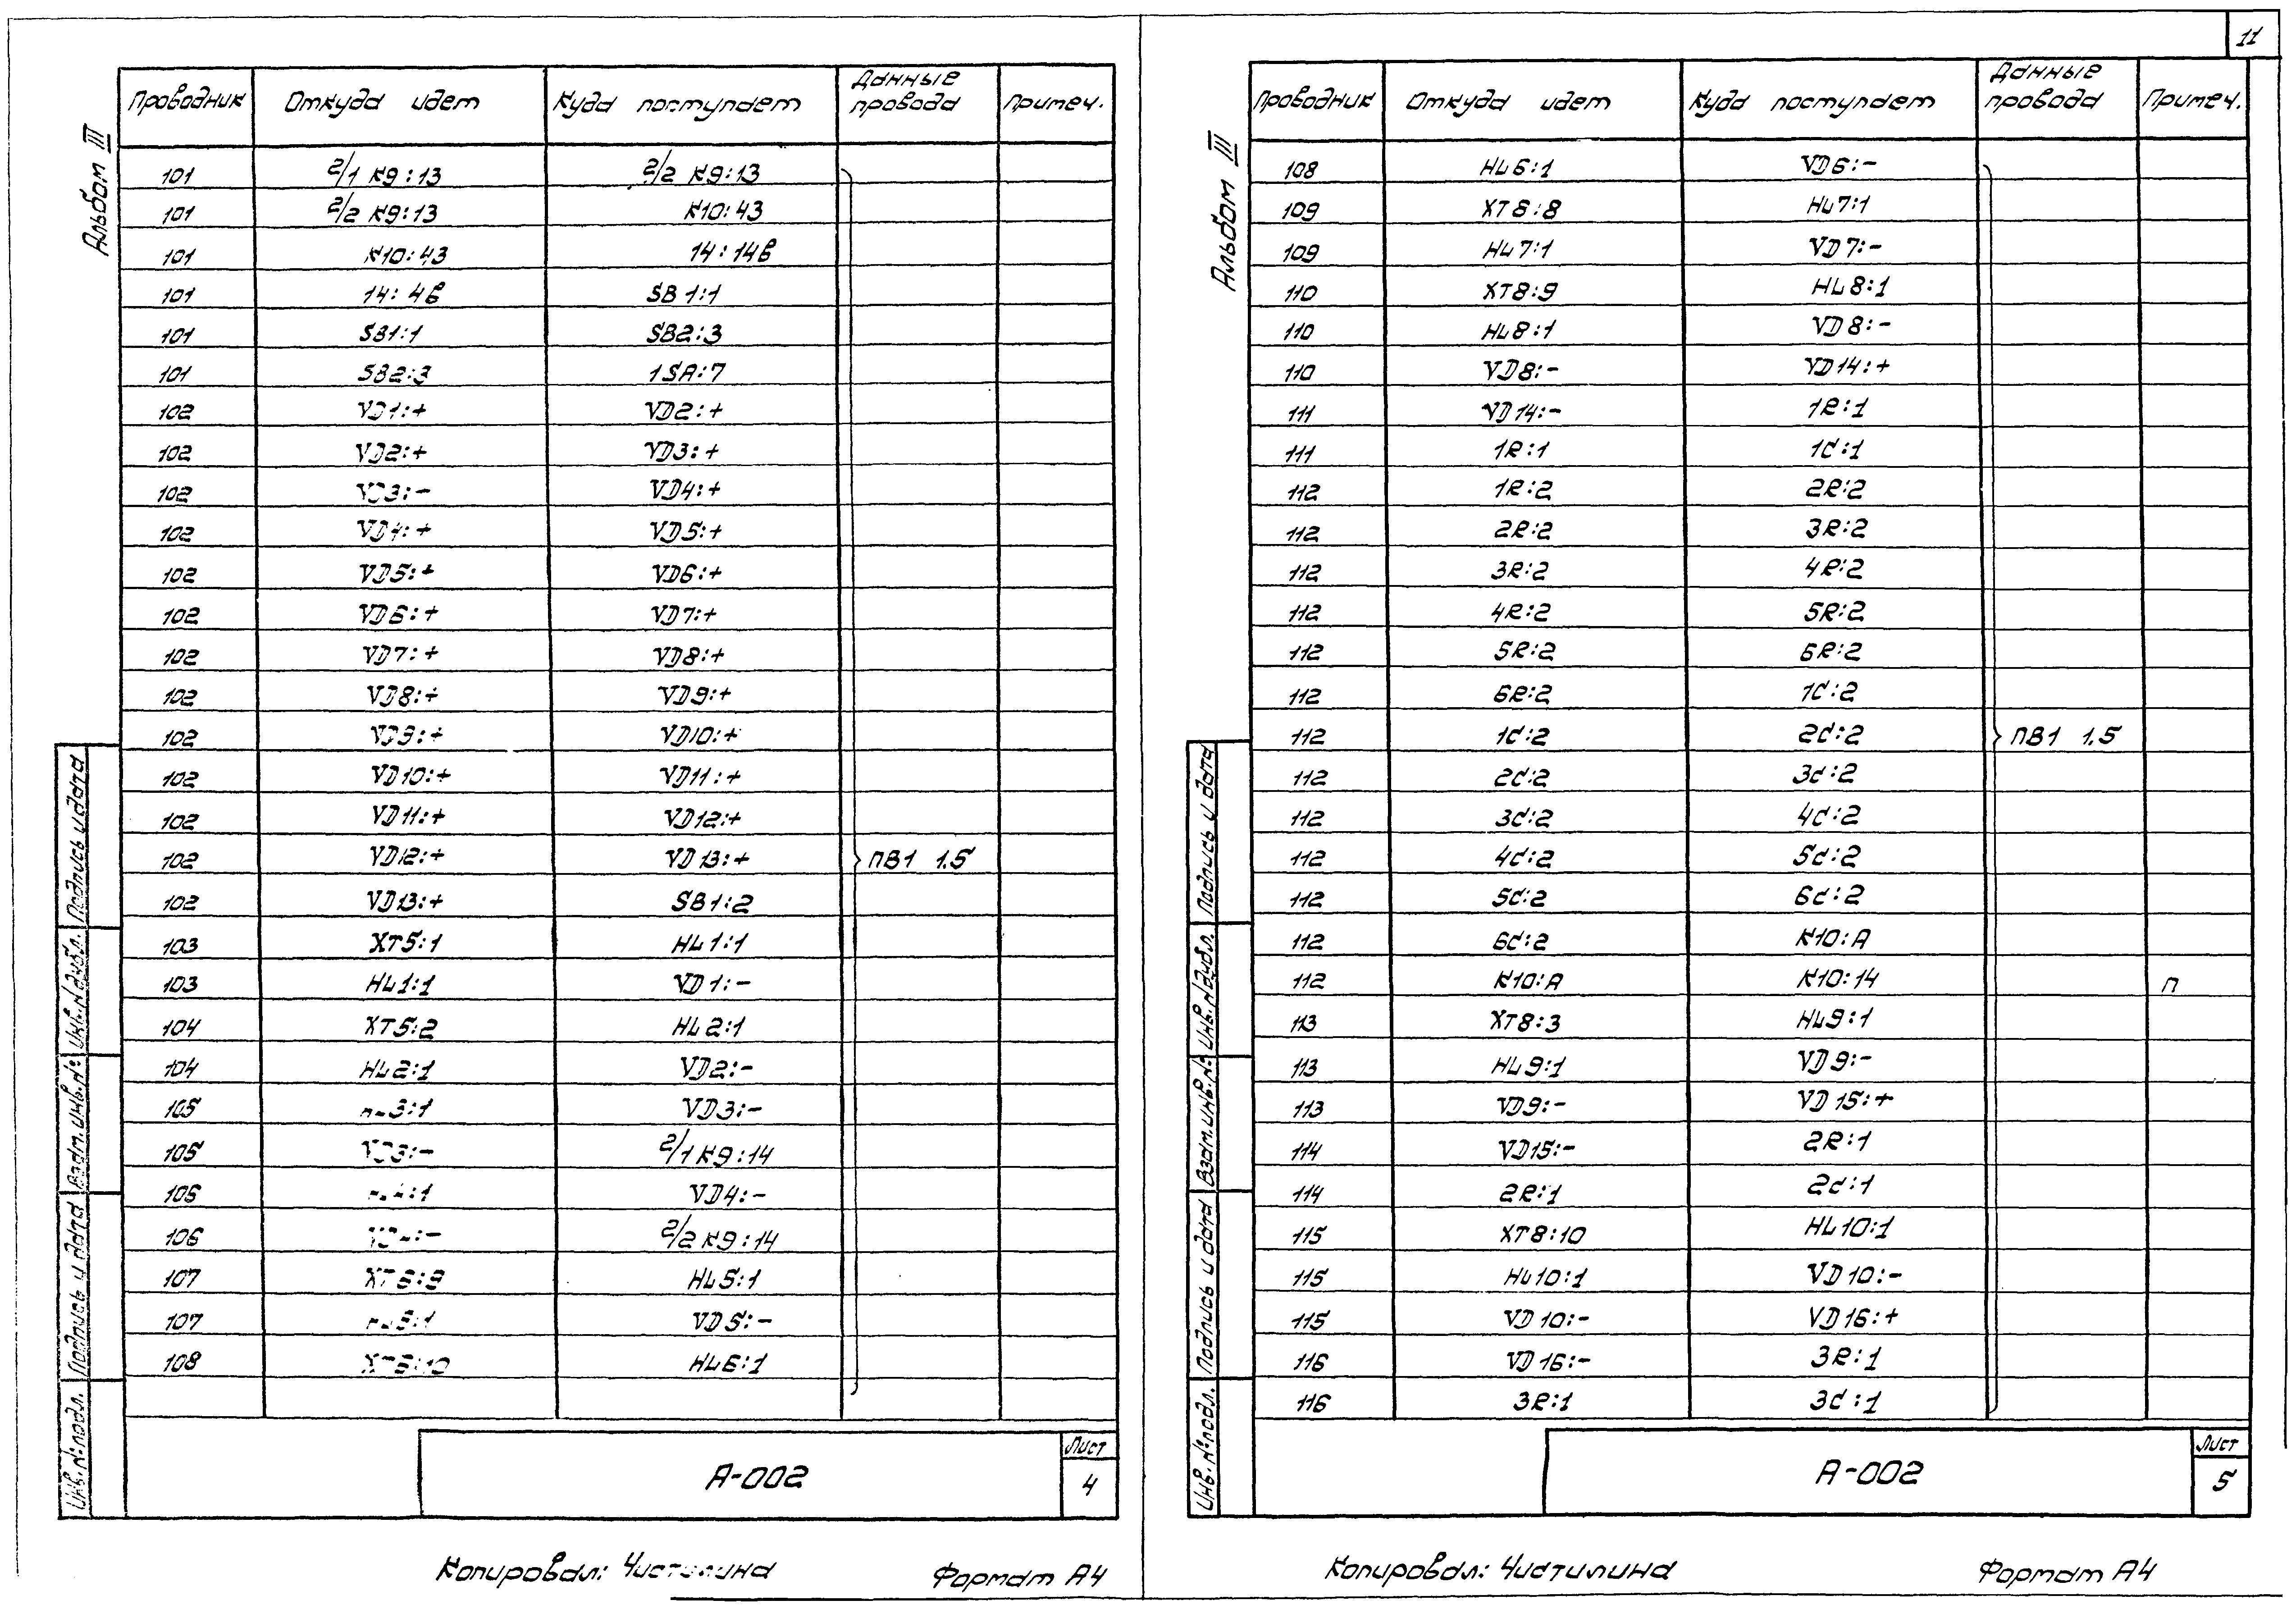 11
Альбом III
Проводник Откуда идет Куда поступает Данные провода Примеч.
101 2/1 К9:13 2/2 К9:13
101 2/2 К9:13 К10:43
101 К10:43 14:14в
101 14:4в SB1:1
101 SB1:1 SB2:3
101 SB2:3 1SA:7
102 VD1:+ VD2:+
102 VD2:+ VD3:+
102 VD3:- VD4:+
102 VD4:+ VD5:+
102 VD5:+ VD6:+
102 VD6:+ VD7:+
102 VD7:+ VD8:+
102 VD8:+ VD9:+
102 VD9:+ VD10:+
102 VD10:+ VD11:+
102 VD11:+ VD12:+
102 VD12:+ VD13:+ ПВ1 1.5
102 VD13:+ SB1:2
103 XT5:1 HL1:1
103 HL1:1 VD1:-
104 XT5:2 HL2:1
104 HL2:1 VD2:-
105 HL3:1 VD3:-
105 VD3:- 2/1 К9:14
106 HL4:1 VD4:-
106 VD4:- 2/2 К9:14
107 XT6:9 HL5:1
107 HL5:1 VD5:-
108 XT6:10 HL6:1
Инв. № подл. Подпись и дата Взам. инв. № Инв. № дубл. Подпись и дата
А-002
Лист
4
Копировал: Чистилина Формат А4
Альбом III
Проводник Откуда идет Куда поступает Данные провода Примеч.
108 HL6:1 VD6:-
109 XT6:8 HL7:1
109 HL7:1 VD7:-
110 XT8:9 HL8:1
110 HL8:1 VD8:-
110 VD8:- VD14:+
111 VD14:- 1R:1
111 1R:1 1C:1
112 1R:2 2R:2
112 2R:2 3R:2
112 3R:2 4R:2
112 4R:2 5R:2
112 5R:2 6R:2
112 6R:2 1C:2
112 1C:2 2C:2 ПВ1 1.5
112 2C:2 3C:2
112 3C:2 4C:2
112 4C:2 5C:2
112 5C:2 6C:2
112 6C:2 К10:А
112 К10:А К10:14 П
113 XT8:3 HL9:1
113 HL9:1 VD9:-
113 VD9:- VD15:+
114 VD15:- 2R:1
114 2R:1 2C:1
115 XT8:10 HL10:1
115 HL10:1 VD10:-
115 VD10:- VD16:+
116 VD16:- 3R:1
116 3R:1 3C:1
Инв. № подл. Подпись и дата Взам. инв. № Инв. № дубл. Подпись и дата
А-002
Лист
5
Копировал: Чистилина Формат А4